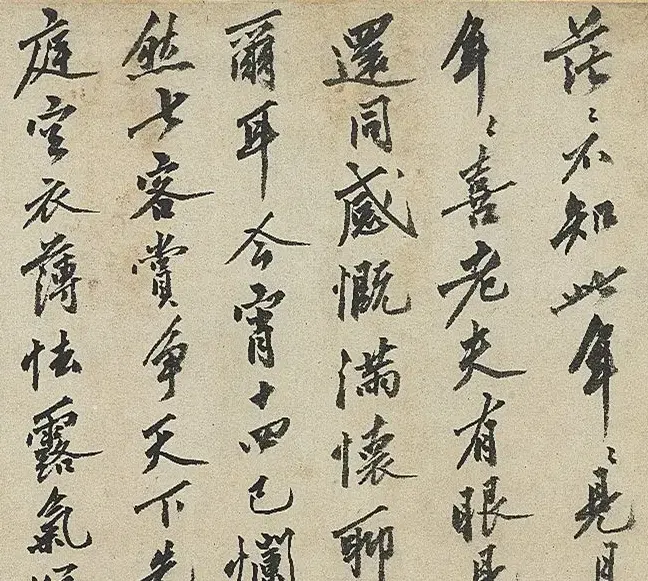 茫〻不知此年〻見月
年〻喜老夫有眼見
還同感慨滿懷聊
爾耳今宵十四已爛
然七客賞争天下先
庭空衣薄怯露氣